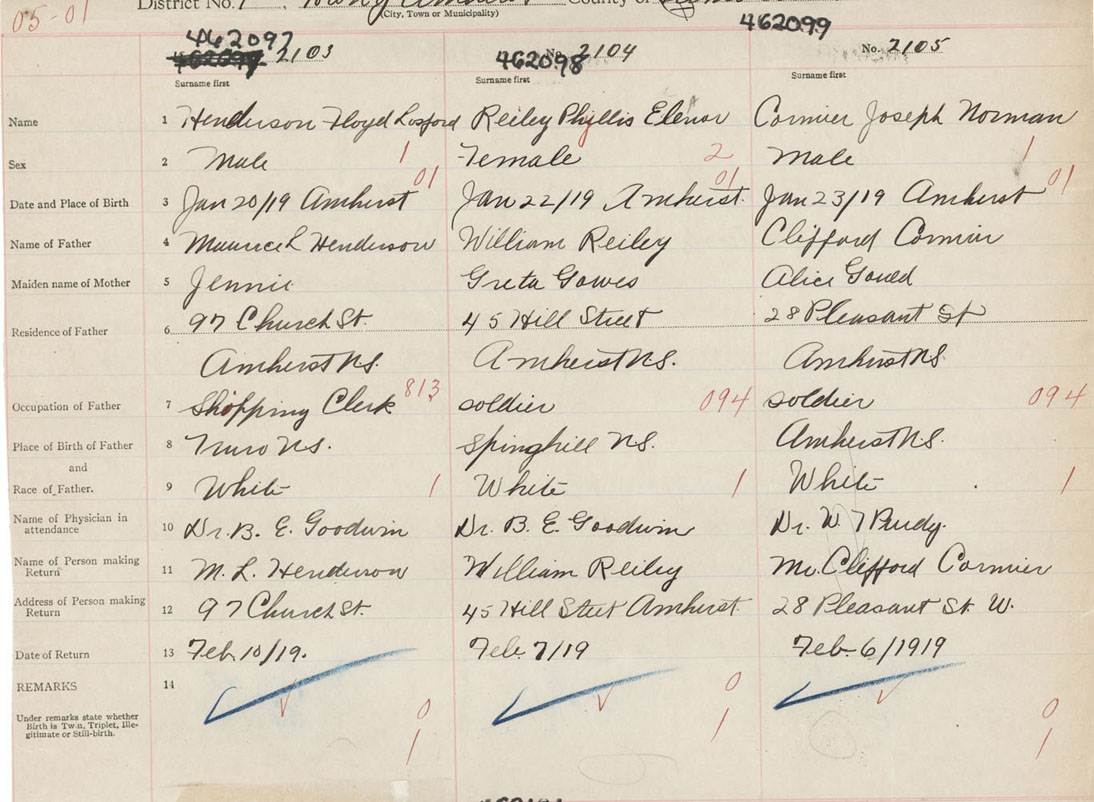 05-01 District No. 1, Town of Amherst County of
(City, Town or Municipality)
462097 462098 462099
2103 No. 2104 No. 2105
Surname first Surname first Surname first
Name 1 Henderson Floyd Losford Reiley Phyllis Elenor Cormier Joseph Norman
Sex 2 Male 1 Female 2 Male 1
Date and Place of Birth 3 Jan 20/19 Amherst 01 Jan 22/19 Amherst. 01 Jan 23/19 Amherst 01
Name of Father 4 Maurice L Henderson William Reiley Clifford Cormier
Maiden name of Mother 5 Jennie Greta Gowes Alice Gould
Residence of Father 6 97 Church St. 45 Hill Street 28 Pleasant St
Amherst N.S. Amherst N.S. Amherst N.S.
Occupation of Father 7 Shopping Clerk 813 soldier 094 soldier 094
Place of Birth of Father 8 Truro N.S. Spinghill N.S. Amherst N.S.
and
Race of Father. 9 White 1 White 1 White 1
Name of Physician in attendance 10 Dr. B. E. Goodwin Dr. B. E. Goodwin Dr. W. T Purdy.
Name of Person making Return 11 M. L. Henderson William Reiley Mr. Clifford Cormier
Address of Person making Return 12 97 Church St. 45 Hill Steet Amherst. 28 Pleasant St. W.
Date of Return 13 Feb. 10/19. Feb. 7/19 Feb. 6/1919
REMARKS 14
Under remarks state whether
Birth is Twin, Triplet, Ille-
gitimate or Still-birth.
0 0 0
1 1 1